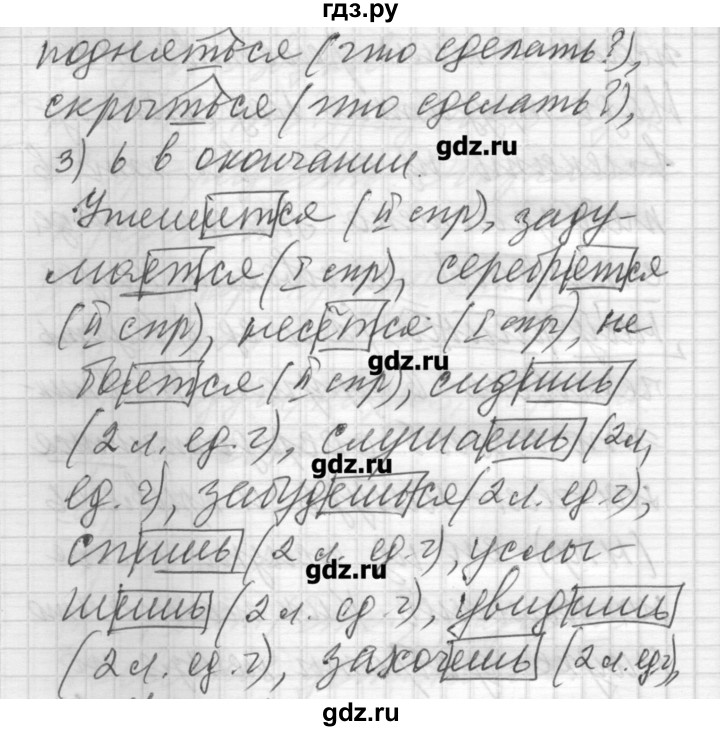 гдз.ру
подняться (что сделать?),
скрыться (что сделать?),
gdz.ru
3) ь в окончании.
Утешится (II спр), заду-
мается (I спр), серебрется
(II спр), несётся (I спр), не
gdz.ru
боется (II спр), сидишь
(2 л. ед. ч), слушаешь (2л,
gdz.ru
ед. ч), забудешься (2 л. ед. ч),
спишь (2 л. ед. ч), услы-
gdz.ru
шишь (2 л. ед. ч), увидишь
(2 л. ед. ч), захочешь (2л. ед ч),
gdz.ru